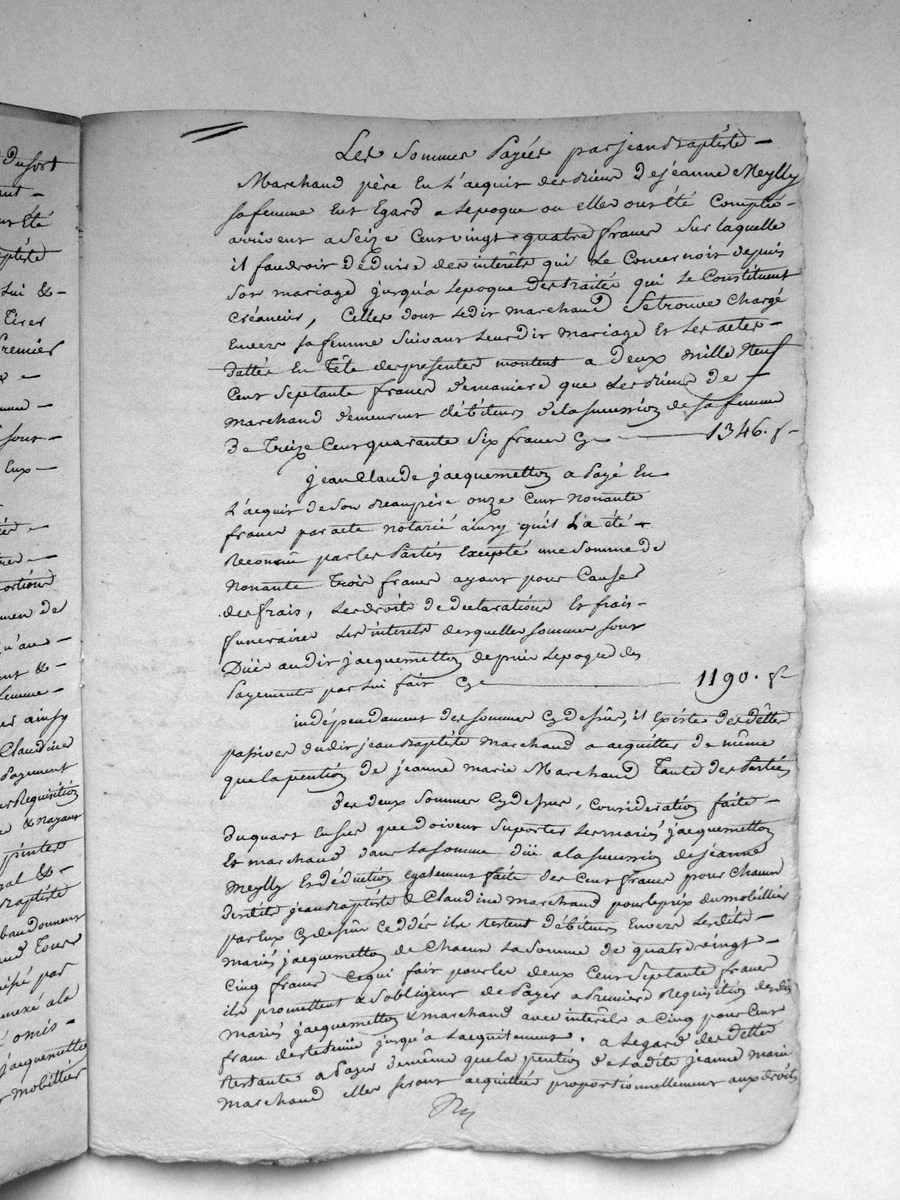 du sort
ont été
Lui &-
Tirer
Premier
sous-
Eux-
qu'au-
ainsy
Claudine
Payement
Requisition
& n'ayant
Baptiste
Tous
par
annexé a la
omis-
jacquemetton
mobillier
Les Sommes Payées par jean Baptiste-
Marchand père En L'acquit des Sieur De jeanne Meylly
sa femme Eut Egard a Lepoque ou elles ont été Comptée-
arrivent a Seize Cent vingt quatre francs sur laquelle
il faudroit déduire des intérêts qui Le Concernoit depuis
Son mariage jusqu'a Lepoque des traités qui Le Constituent
Créancier, Celles dont Ledit Marchand Se trouve Chargé
Envers Sa femme Suivant Leurdit Mariage Et Les actes-
dattés En Tête des presentes montent a Deux Mille Neuf
Cent Septante francs Demaniere que Les Sieur De-
Marchand Demeurent débiteurs De la succession de Sa femme
De Treize Cent quarante Six francs Cy 1346. f-
jean Claude jacquemetton a Payé En
L'acquit de Son Beaupère onze Cent Nonante
francs par acte notarié ainsy quil L'a été
Reconnu par les Partiés Excepté une Somme De
Nonante Trois francs ayant pour Causes
des frais, Les droits De declarations Et frais-
funeraires Les interets desquelles sommes sont
Düe audit jacquemetton depuis Lepoque des
Payements par Lui fait Cy 1190. f-
indépendament des sommes Cy dessus, il existe des dettes
passives dudit jean Baptiste Marchand a acquitter de même
que la pention de jeanne marie Marchand Tante des Partiés
Des deux Sommes Cy dessus, Consideration faite-
Du quart Ensus que doivent Suporter Les mariés jacquemetton
Et marchand dans La Somme düe a la succession de jeanne
Meylly Et déduction également faite des Cent francs pour Chacun
desdits jean Baptiste & Claudine Marchand pour le prix du mobillier
par Eux Cy dessus Ceddés ils restent débiteurs Envers Lesdits-
Mariés jacquemetton de Chacun La Somme de quatrevingt-
Cinq francs Ce qui fait pour les deux Cent Septante francs
ils promettent & s'obligent de Payer a Premiere Requisition des dits
Mariés jacquemetton & Marchand avec intérêts a Cinq pour Cent
franc de retenüe jusqu'a Lacquitement. a Legard des Dettes
Restante a Payer de même que la pention de Ladite jeanne Marie
Marchand elles seront acquittées proportionnellement aux droits